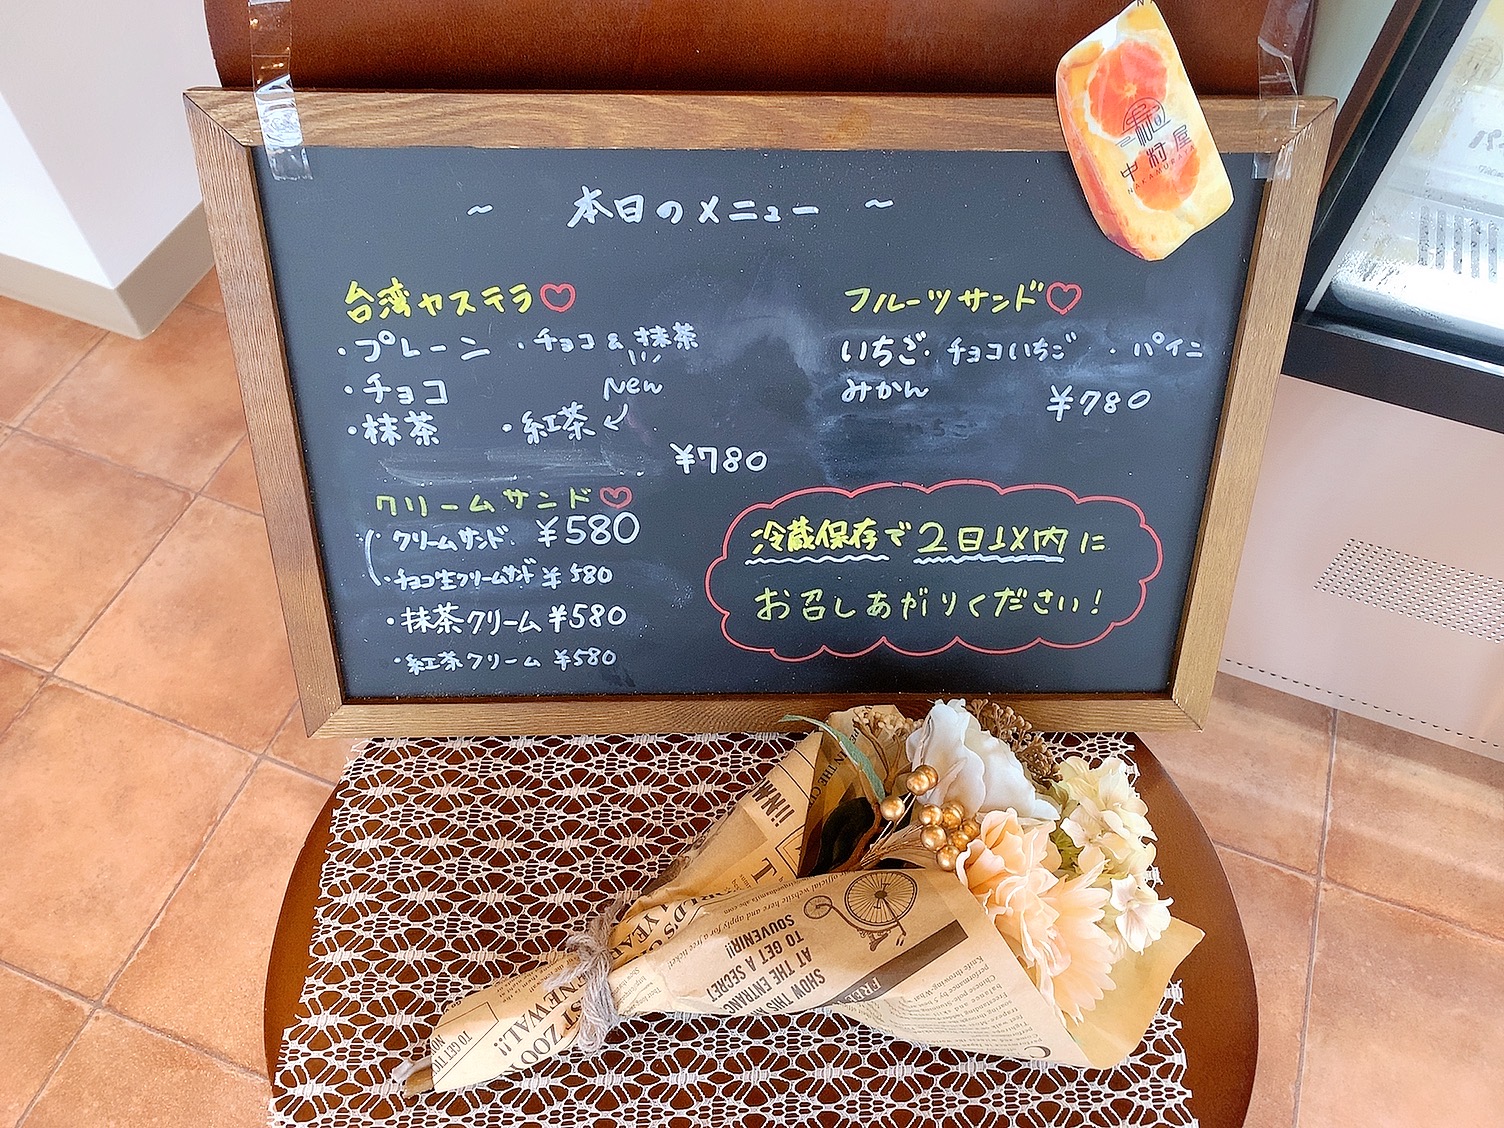 ~ 本日のメニュー ~
台湾カステラ♡
・プレーン ・チョコ & 抹茶
・チョコ New
・抹茶 ・紅茶
¥780
クリームサンド♡
クリームサンド. ¥580
・チョコ生クリームサンド ¥580
・抹茶クリーム ¥580
・紅茶クリーム ¥580
フルーツサンド♡
いちご・チョコいちご ・パイン
みかん ¥780
冷蔵保存で2日以内に
お召しあがりください!
中村屋
NAKAMURAYA
IN THE
official website here and apply for a free ticket!
SHOW THIS
AT THE ENTRANC
TO GET A SECRET
SOUVENIR!!
FREE
WORLD'S
YEAR
ST ZOO
RENEWAL!!
TO GET
Knife throwing